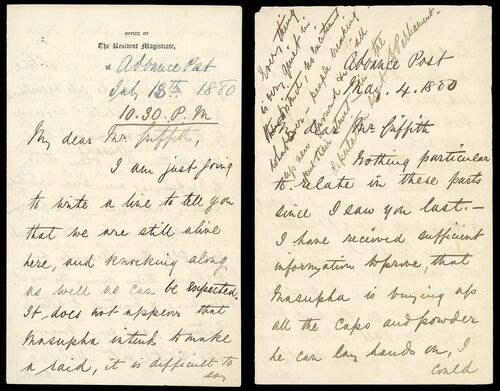 OFFICE OF
The Resident Magistrate,
at Advance Post
July 13th 1880
10.30. P.M.
My dear Mr. Griffith,
I am just going
to write a line to tell you
that we are still alive
here, and knocking along
as well as can be expected.
It does not appear that
Masupha intends to make
a raid, it is difficult to
say
Every thing
is very quiet in
this district no excitement
whatever people
up new ground
put their trust in the
of Parliament.
Advance Post
May. 4. 1880
My dear Mr. Griffith
Nothing particular
to relate in these parts
since I saw you last. —
I have received sufficient
information to prove, that
Masupha is buying up
all the caps and powder
he can lay hands on, I
could